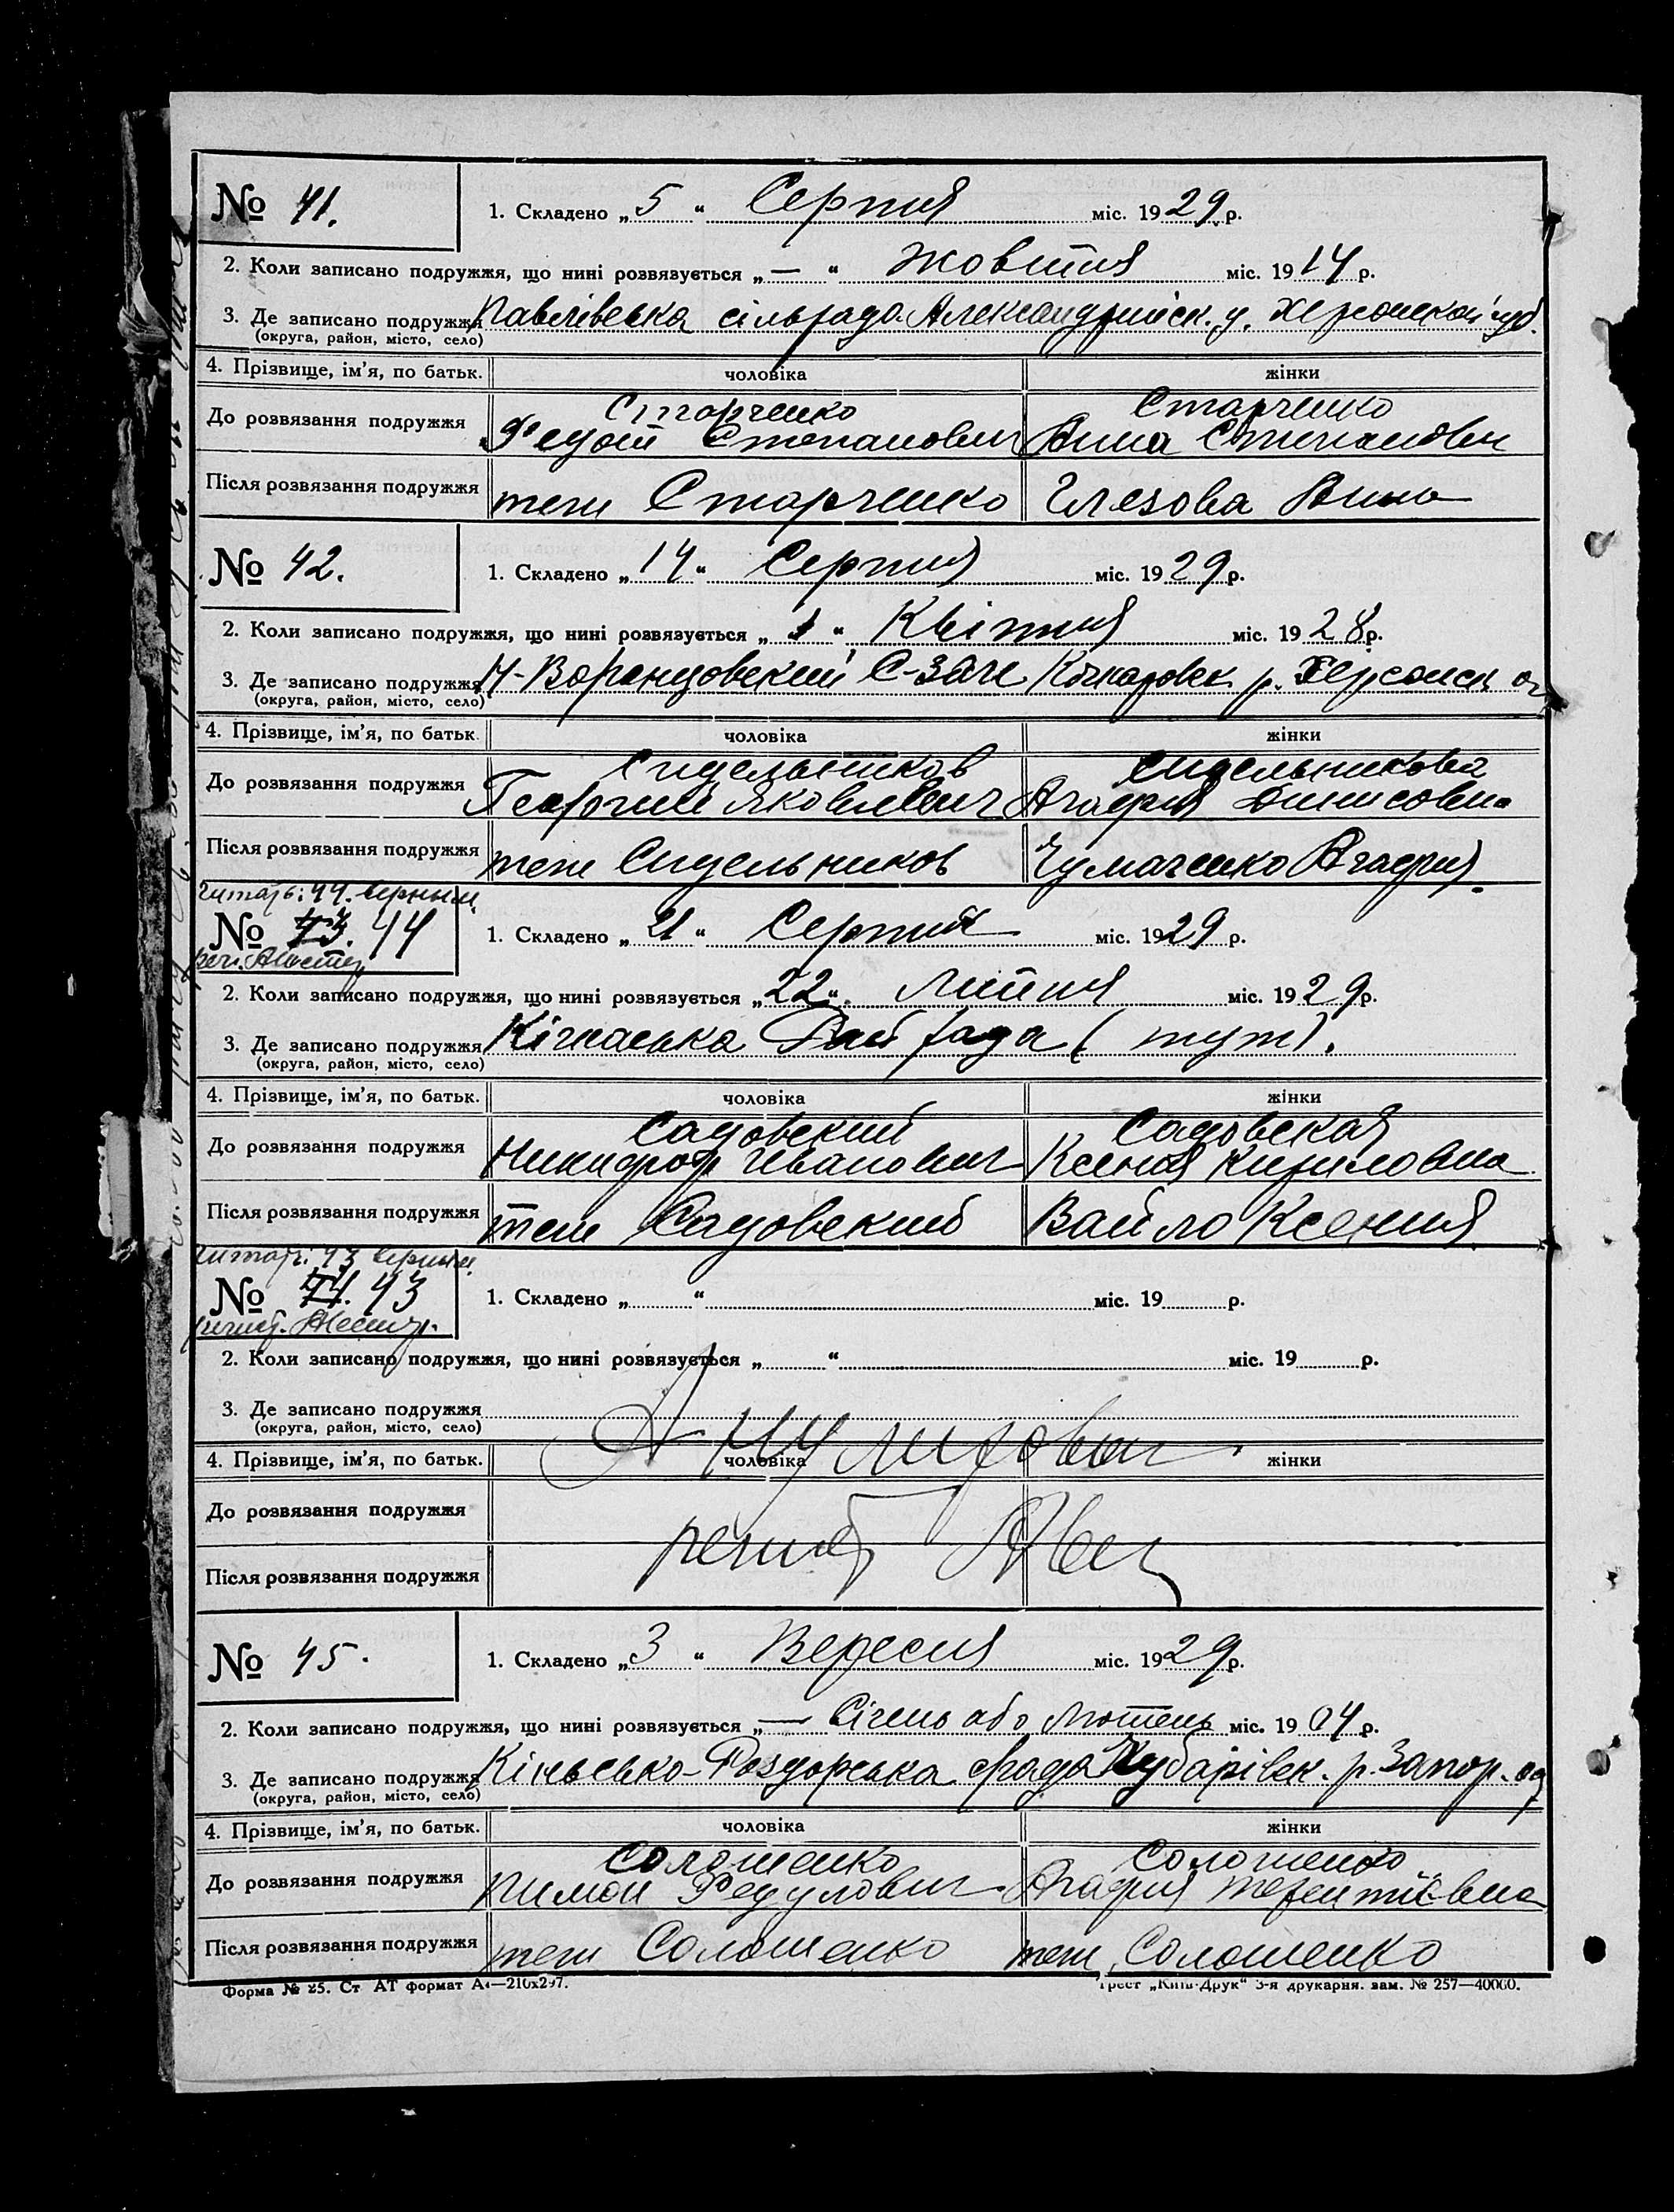 № 41.
1. Складено „5“ Серпня міс. 1929 р.
2. Коли записано подружжя, що нині розвязується „—“ Жовтня міс. 1914 р.
3. Де записано подружжя Павлівська сільрада. Александрийск. у. Херсонской губ.
(округа, район, місто, село)
4. Прізвище, ім’я, по батьк. чоловіка жінки
До розвязання подружжя Старченко Федот Степанович Старченко Анна Степановн
Після розвязання подружжя теж Старченко Глезова Анна
№ 42.
1. Складено „14“ Серпня міс. 1929 р.
2. Коли записано подружжя, що нині розвязується „1“ Квітня міс. 1928 р.
3. Де записано подружжя Н-Воронцовский С-ЗАГС р. Херсонск ок
(округа, район, місто, село)
4. Прізвище, ім’я, по батьк. чоловіка жінки
До розвязання подружжя Сидельников Георгий Яковлевич Сидельникова Агафия Динисовна
Після розвязання подружжя теж Сидельников Чумаченко Агафия
Читать: 44. верным
№ 43. 44
1. Складено „21“ Серпня міс. 1929 р.
2. Коли записано подружжя, що нині розвязується „22“ Липня міс. 1929 р.
3. Де записано подружжя Кічкаська рада (тут).
(округа, район, місто, село)
4. Прізвище, ім’я, по батьк. чоловіка жінки
До розвязання подружжя Садовский Никифор Иванович Садовская Ксения Кириловна
Після розвязання подружжя теж Садовский Вайло Ксения
Читать: 43 верным
№ 44. 43
1. Складено „ “ міс. 19 р.
2. Коли записано подружжя, що нині розвязується „ “ міс. 19 р.
3. Де записано подружжя
(округа, район, місто, село)
Анулирован
4. Прізвище, ім’я, по батьк. чоловіка жінки
До розвязання подружжя
Після розвязання подружжя
№ 45.
1. Складено „3“ Вересня міс. 1929 р.
2. Коли записано подружжя, що нині розвязується „— Січень або Лютень міс. 1904 р.
3. Де записано подружжя Кінсько-Роздорська с/рада р. Запор. ок
(округа, район, місто, село)
4. Прізвище, ім’я, по батьк. чоловіка жінки
До розвязання подружжя Солошенко Пимон Федулович Солошенко Агафия Терентиевна
Після розвязання подружжя теж Солошенко теж Солошенко
Форма № 25. Ст АТ формат А4—210х297. Трест „Київ-Друк“ 3-я друкарня. зам. № 257—40000.